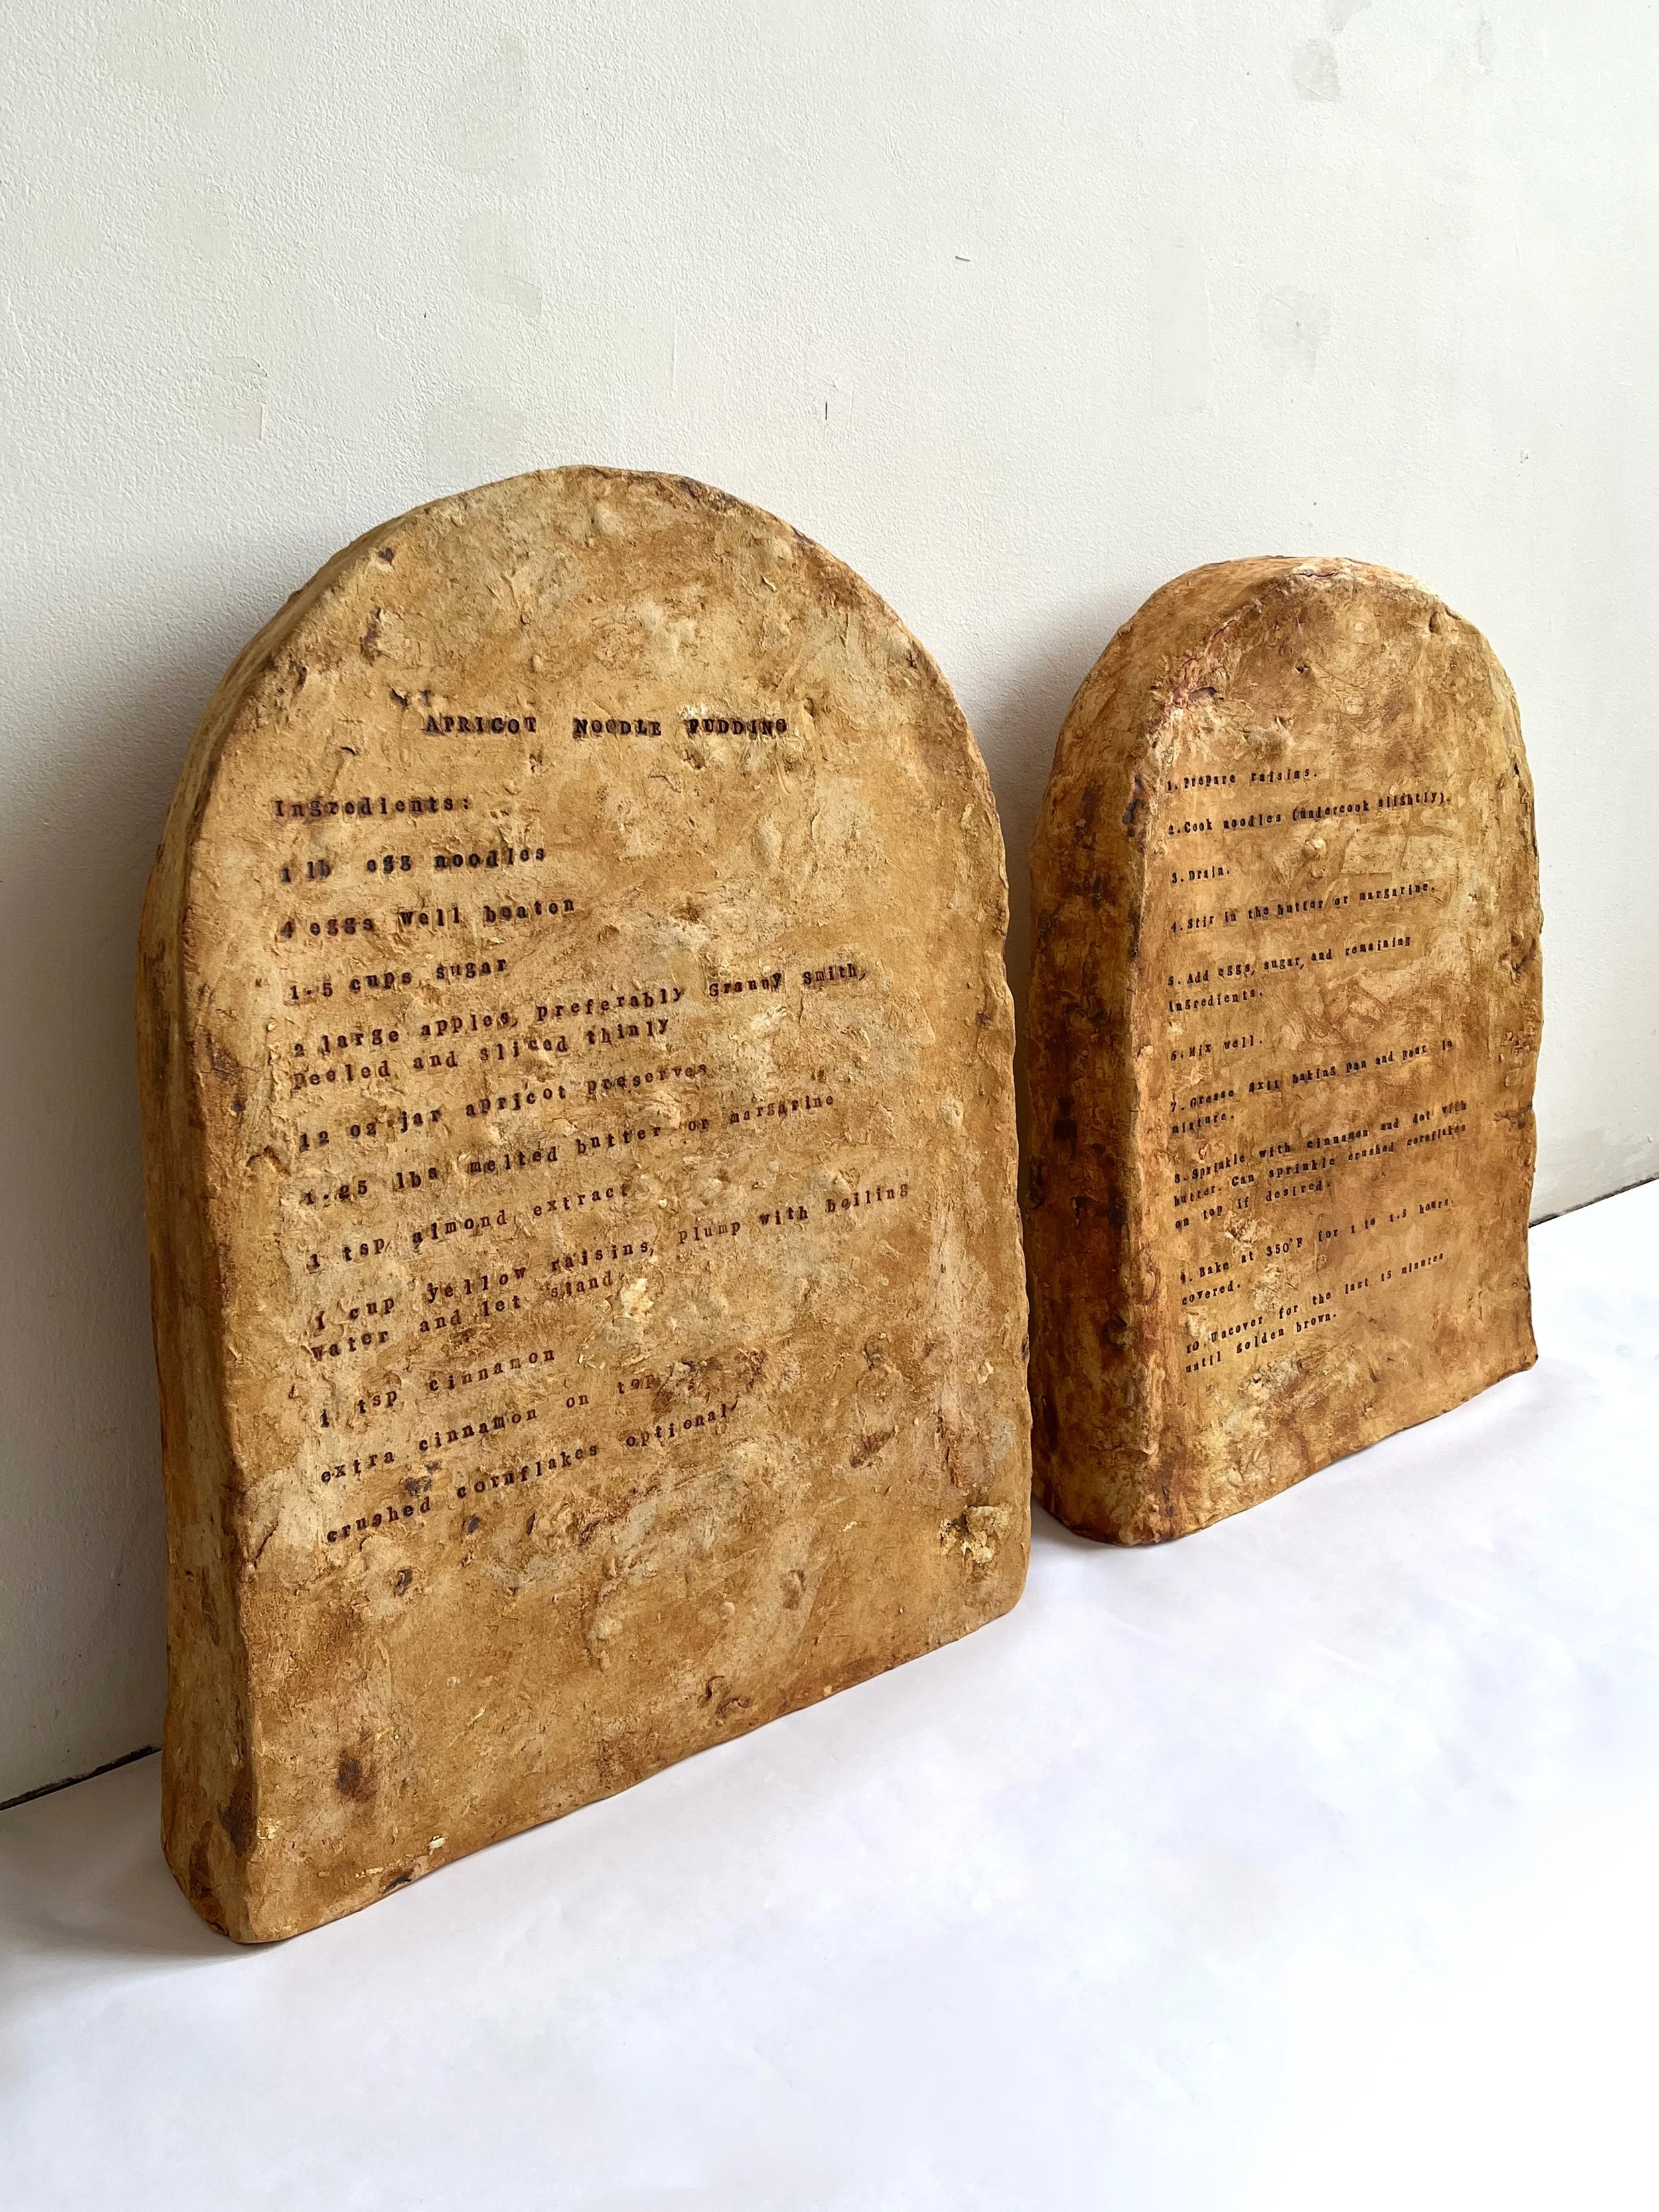 APRICOT NOODLE PUDDING
Ingredients:
1 lb egg noodles
4 eggs well beaten
1.5 cups sugar
2 large apples, preferably Granny Smith,
peeled and sliced thinly
12 oz jar apricot preserves
1.25 lbs melted butter or margarine
1 tsp almond extract
1 cup yellow raisins, plump with boiling
water and let stand
1 tsp cinnamon
extra cinnamon on top
crushed cornflakes optional
1. Prepare raisins.
2. Cook noodles (undercook slightly).
3. Drain.
4. Stir in the butter or margarine.
5. Add eggs, sugar, and remaining
ingredients.
6. Mix well.
7. Grease 8x11 baking pan and pour in
mixture.
8. Sprinkle with cinnamon and dot with
butter. Can sprinkle crushed cornflakes
on top if desired.
9. Bake at 350°F for 1 to 1.5 hours,
covered.
10. Uncover for the last 15 minutes
until golden brown.